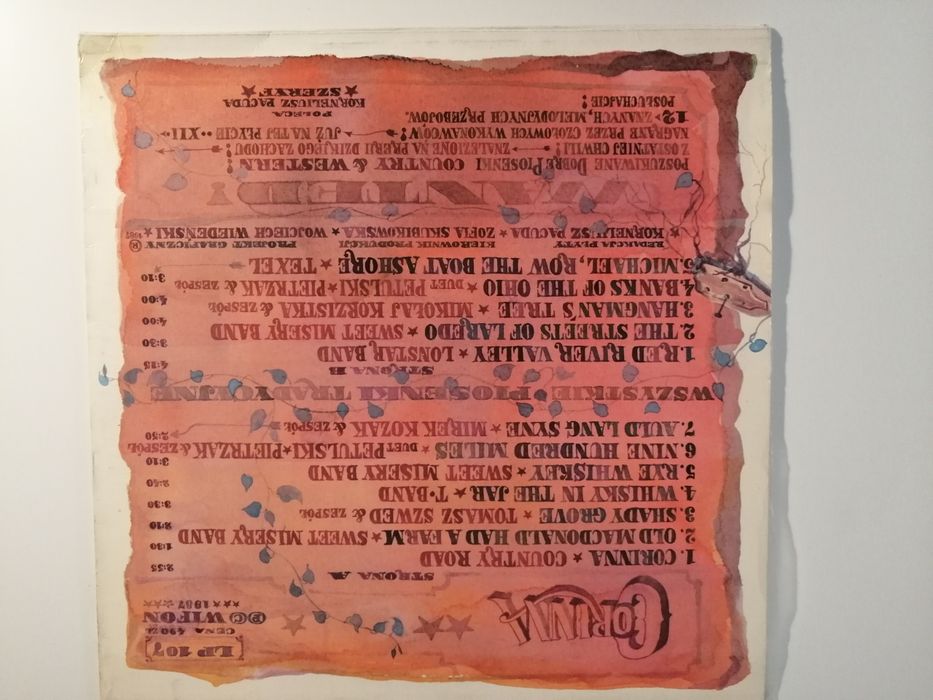 CORINNA
LP 107
CENA 490 ZŁ
℗© WIFON
★★★ 1987 ★★★
STRONA A
1. CORINNA ★ COUNTRY ROAD 2:55
2. OLD MACDONALD HAD A FARM ★ SWEET MISERY BAND 1:30
3. SHADY GROVE ★ TOMASZ SZWED & ZESPÓŁ 2:10
4. WHISKY IN THE JAR ★ T·BAND 3:30
5. RYE WHISKEY ★ SWEET MISERY BAND 2:40
6. NINE HUNDRED MILES ★ DUET PETULSKI★PIETRZAK & ZESPÓŁ 3:10
7. AULD LANG SYNE ★ MIREK KOZAK & ZESPÓŁ 2:50
WSZYSTKIE PIOSENKI TRADYCYJNE
STRONA B
1. RED RIVER VALLEY ★ LONSTAR BAND 4:15
2. THE STREETS OF LAREDO ★ SWEET MISERY BAND 3:30
3. HANGMAN'S TREE ★ MIKOŁAJ KORZISTKA & ZESPÓŁ 4:00
4. BANKS OF THE OHIO ★ DUET PETULSKI★PIETRZAK & ZESPÓŁ 4:00
5. MICHAEL, ROW THE BOAT ASHORE ★ TEXEL 3:10
REDAKCJA PŁYTY KIEROWNIK PRODUKCJI PROJEKT GRAFICZNY ®
★ KORNELIUSZ PACUDA ★ ZOFIA SKUBIKOWSKA ★ WOJCIECH WIEDEŃSKI ★ 1987
WANTED!
POSZUKIWANE DOBRE PIOSENKI COUNTRY & WESTERN!
Z OSTATNIEJ CHWILI! ZNALEZIONE NA PRERII DZIKIEGO ZACHODU!
NAGRANE PRZEZ CZOŁOWYCH WYKONAWCÓW! JUŻ NA TEJ PŁYCIE ·XII·
12 ZNANYCH, MELODYJNYCH PRZEBOJÓW.
POSŁUCHAJCIE!
POLECA
KORNELIUSZ PACUDA
★ SZERYF ★